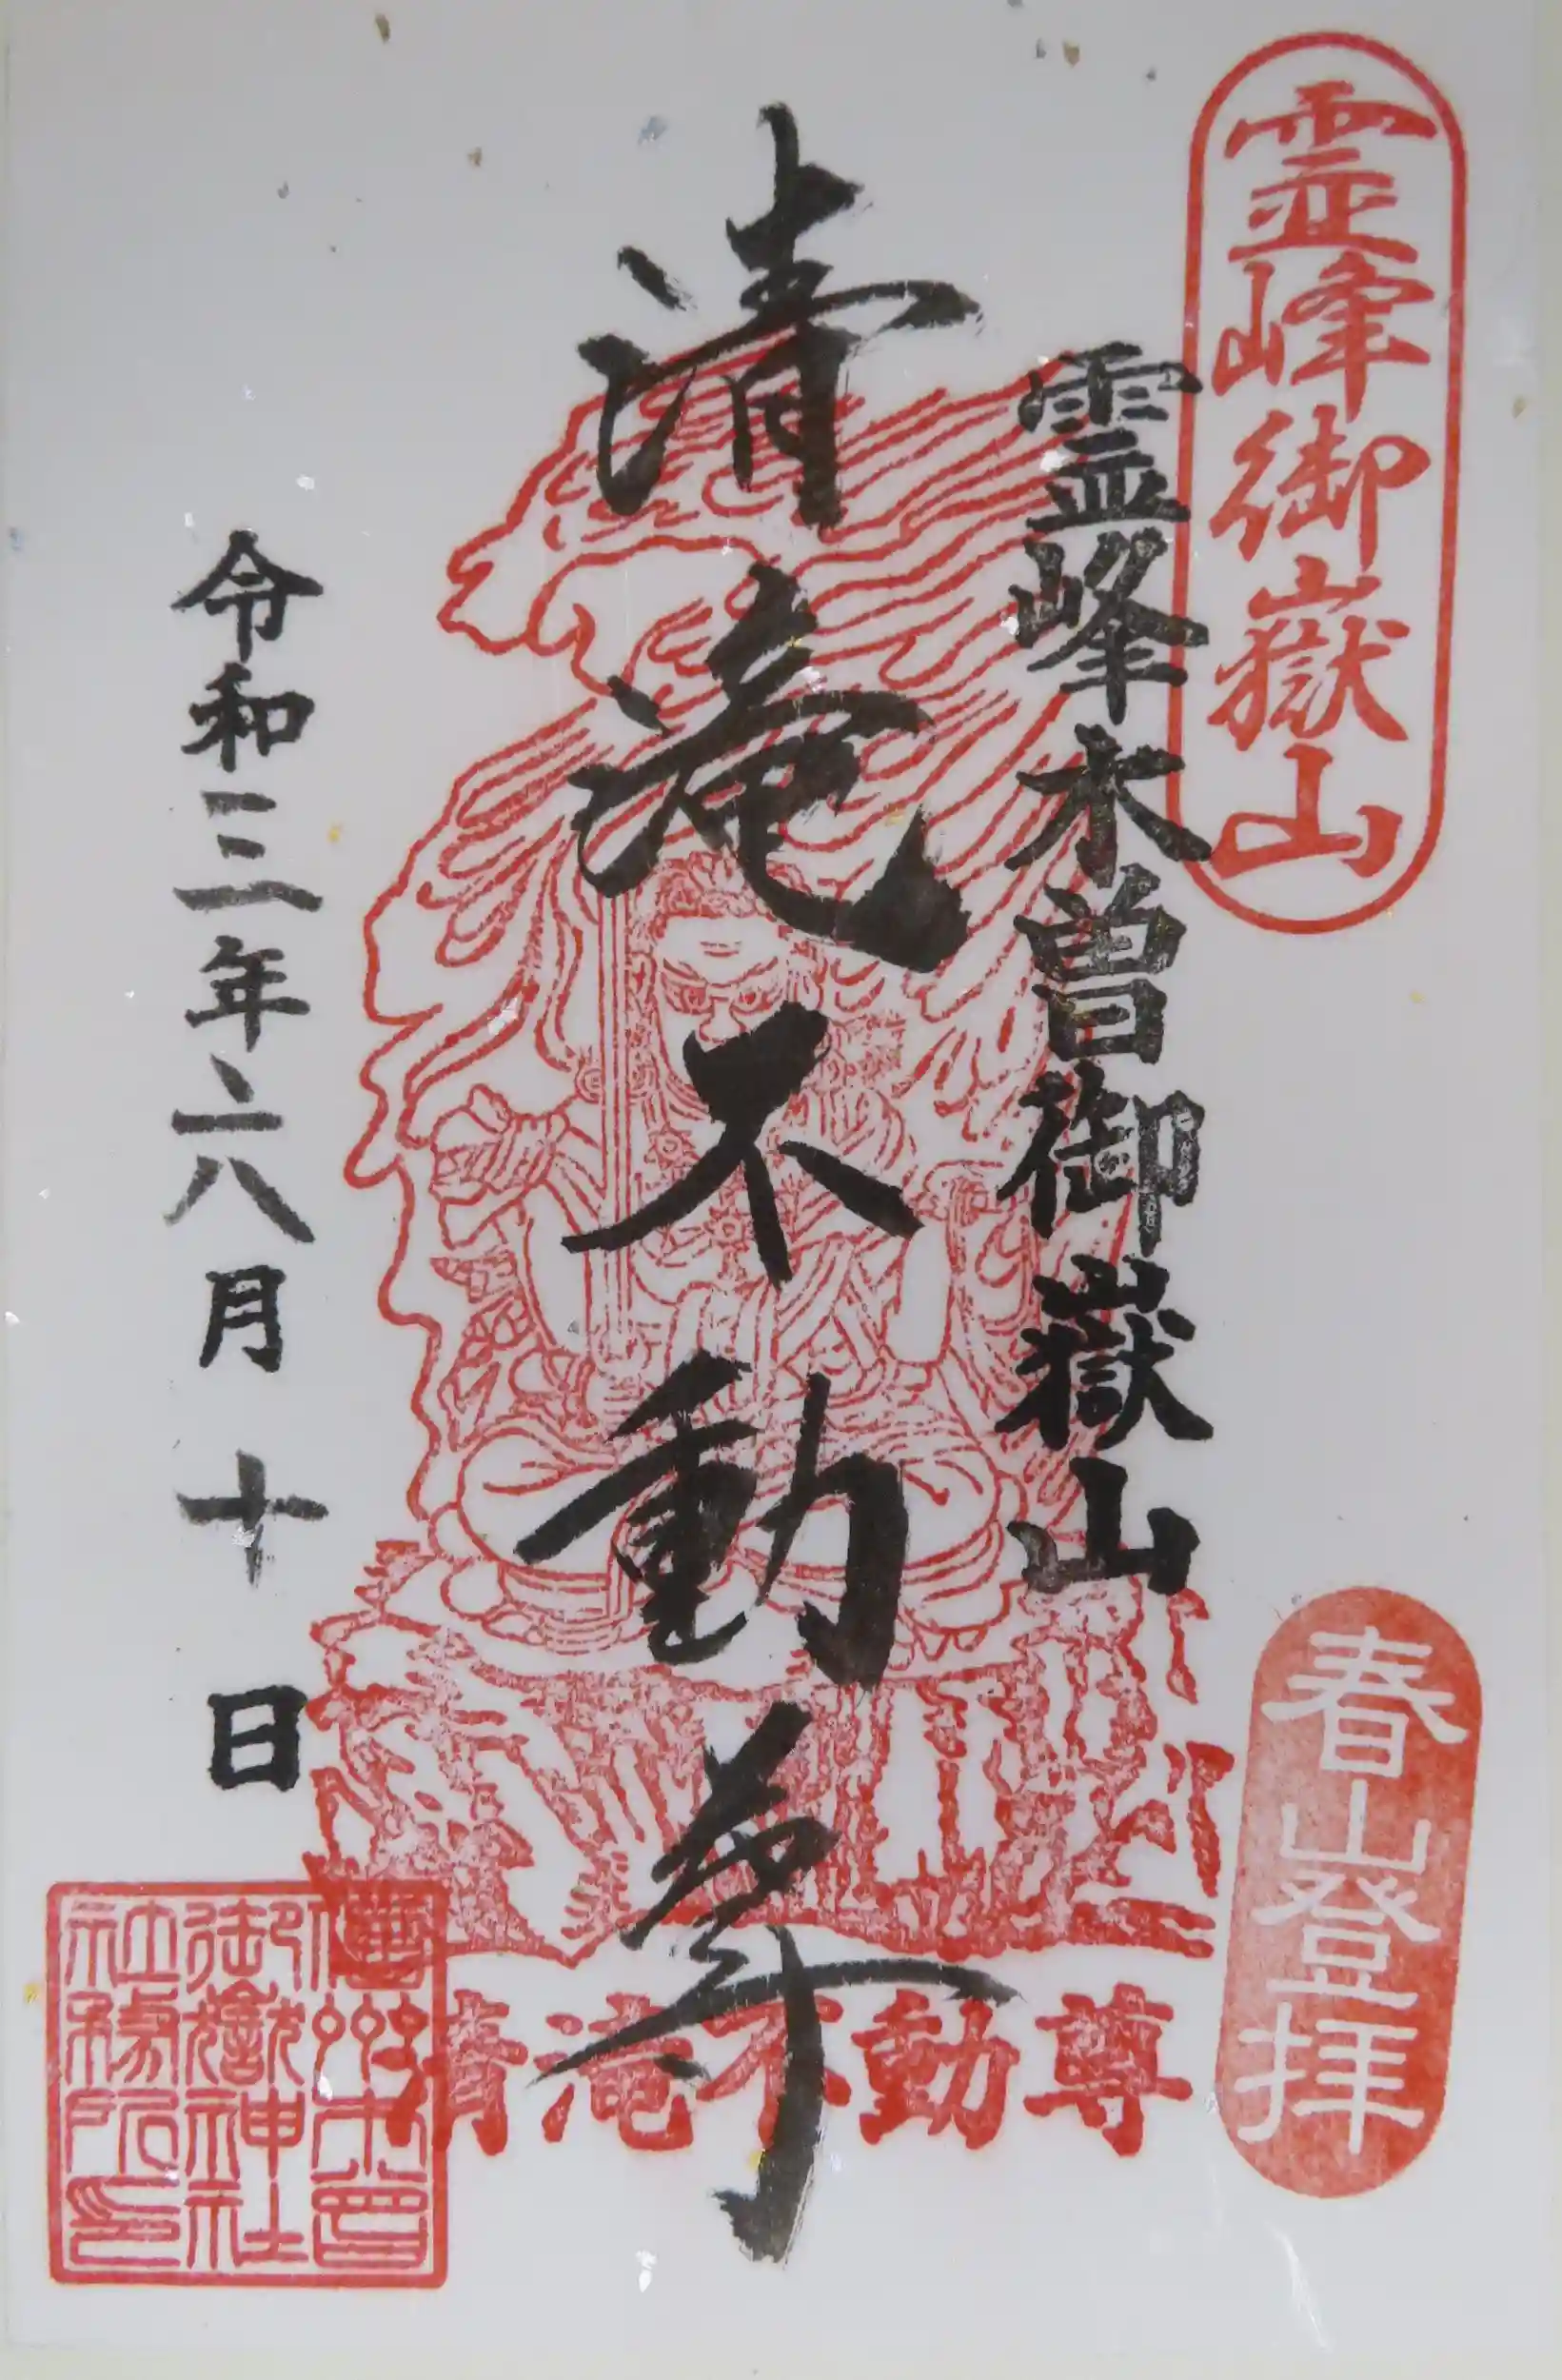 霊峰御嶽山
春山登拝
霊峰木曽御嶽山
清滝不動尊
清滝不動尊
令和三年六月十日
信州木曽
御嶽神社
社務所印